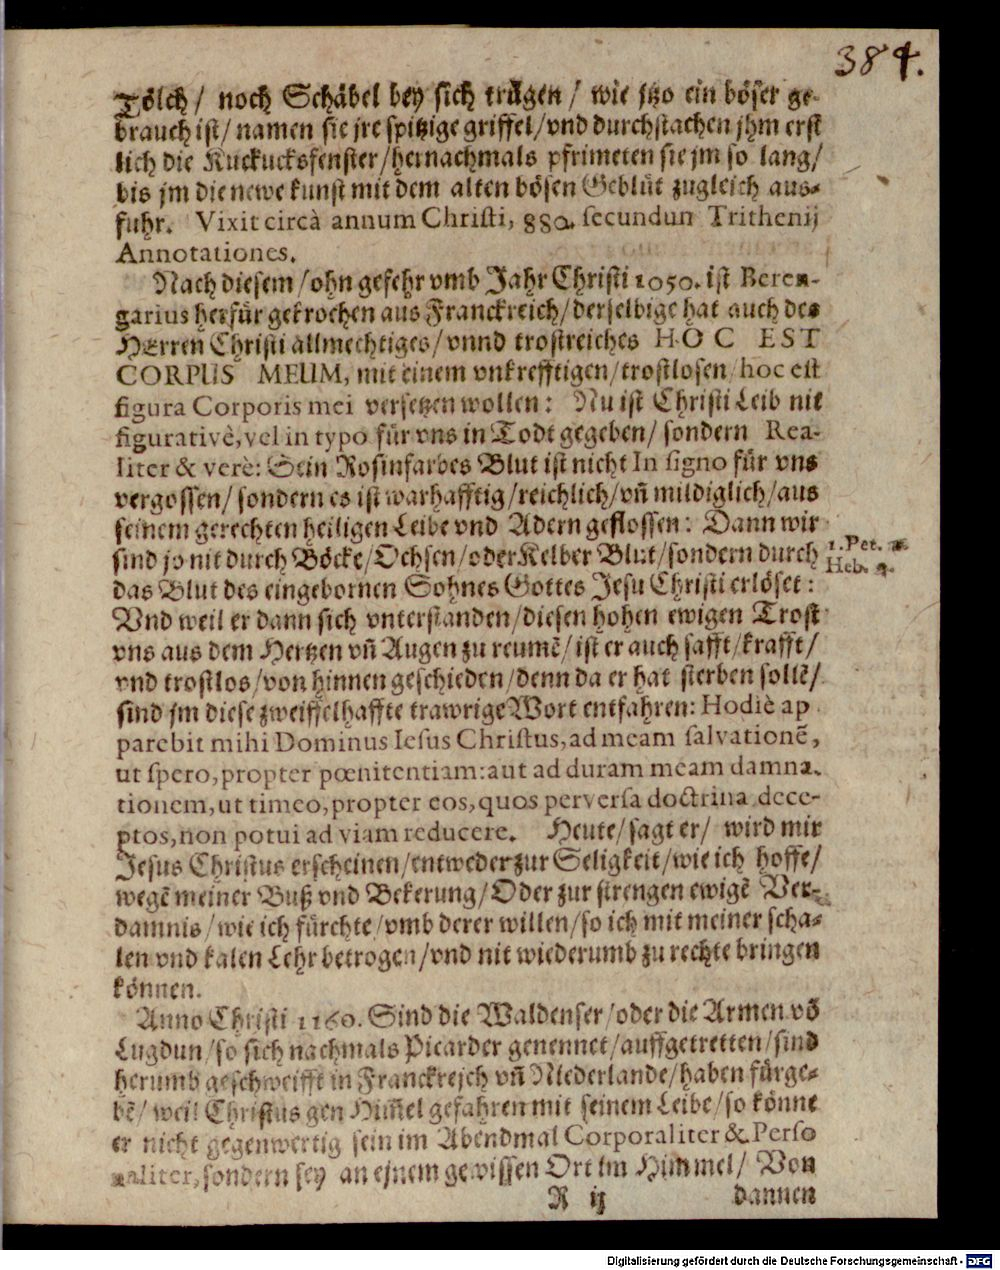 384.
Tölch / noch Schäbel bey sich trägen / wie jtzo ein böser ge-
brauch ist / namen sie jre spitzige griffel / vnd durchstachen jhm erst
lich die Kuckucksfenster / hernachmals pfrimeten sie jm so lang /
bis jm die newe kunst mit dem alten bösen Geblüt zugleich aus-
fuhr. Vixit circà annum Christi, 880. secundun Trithenij
Annotationes.
Nach diesem / ohn gefehr vmb Jahr Christi 1050. ist Beren-
garius herfür gekrochen aus Franckreich / derselbige hat auch des
HErren Christi allmechtiges / vnnd trostreiches HOC EST
CORPUS MEUM, mit einem vnkrefftigen / trostlosen / hoc est
figura Corporis mei versetzen wollen: Nu ist Christi Leib nit
figurativè, vel in typo für vns in Todt gegeben / sondern Rea-
liter & verè: Sein Rosinfarbes Blut ist nicht In signo für vns
vergossen / sondern es ist warhafftig / reichlich / vñ mildiglich / aus
seinem gerechten heiligen Leibe vnd Adern geflossen: Dann wir
sind jo nit durch Böcke / Ochsen / oder Kelber Blut / sondern durch
1. Pet.
Heb. 9.
das Blut des eingebornen Sohnes Gottes Jesu Christi erlöset:
Vnd weil er dann sich vnterstanden / diesen hohen ewigen Trost
vns aus dem Hertzen vñ Augen zu reumẽ / ist er auch safft / krafft /
vnd trostlos / von hinnen geschieden / denn da er hat sterben sollẽ /
sind jm diese zweiffelhaffte trawrige Wort entfahren: Hodiè ap
parebit mihi Dominus Iesus Christus, ad meam salvationẽ,
ut spero, propter pœnitentiam: aut ad duram meam damna-
tionem, ut timeo, propter eos, quos perversa doctrina dece-
ptos, non potui ad viam reducere. Heute / sagt er / wird mir
Jesus Christus erscheinen / entweder zur Seligkeit / wie ich hoffe /
wegẽ meiner Buß vnd Bekerung / Oder zur strengen ewigẽ Ver-
damnis / wie ich fürchte / vmb derer willen / so ich mit meiner scha-
len vnd kalen Lehr betrogen / vnd nit wiederumb zu rechte bringen
können.
Anno Christi 1160. Sind die Waldenser / oder die Armen võ
Lugdun / so sich nachmals Picarder genennet / auffgetretten / sind
herumb geschweifft in Franckrejch vñ Niederlande / haben fürge-
bẽ / weil Christus gen Him̃el gefahren mit seinem Leibe / so könne
er nicht gegenwertig sein im Abendmal Corporaliter & Perso
naliter, sondern sey an ejnem gewissen Ort im Himmel / Von
R ij dannen
Digitalisierung gefördert durch die Deutsche Forschungsgemeinschaft - DFG